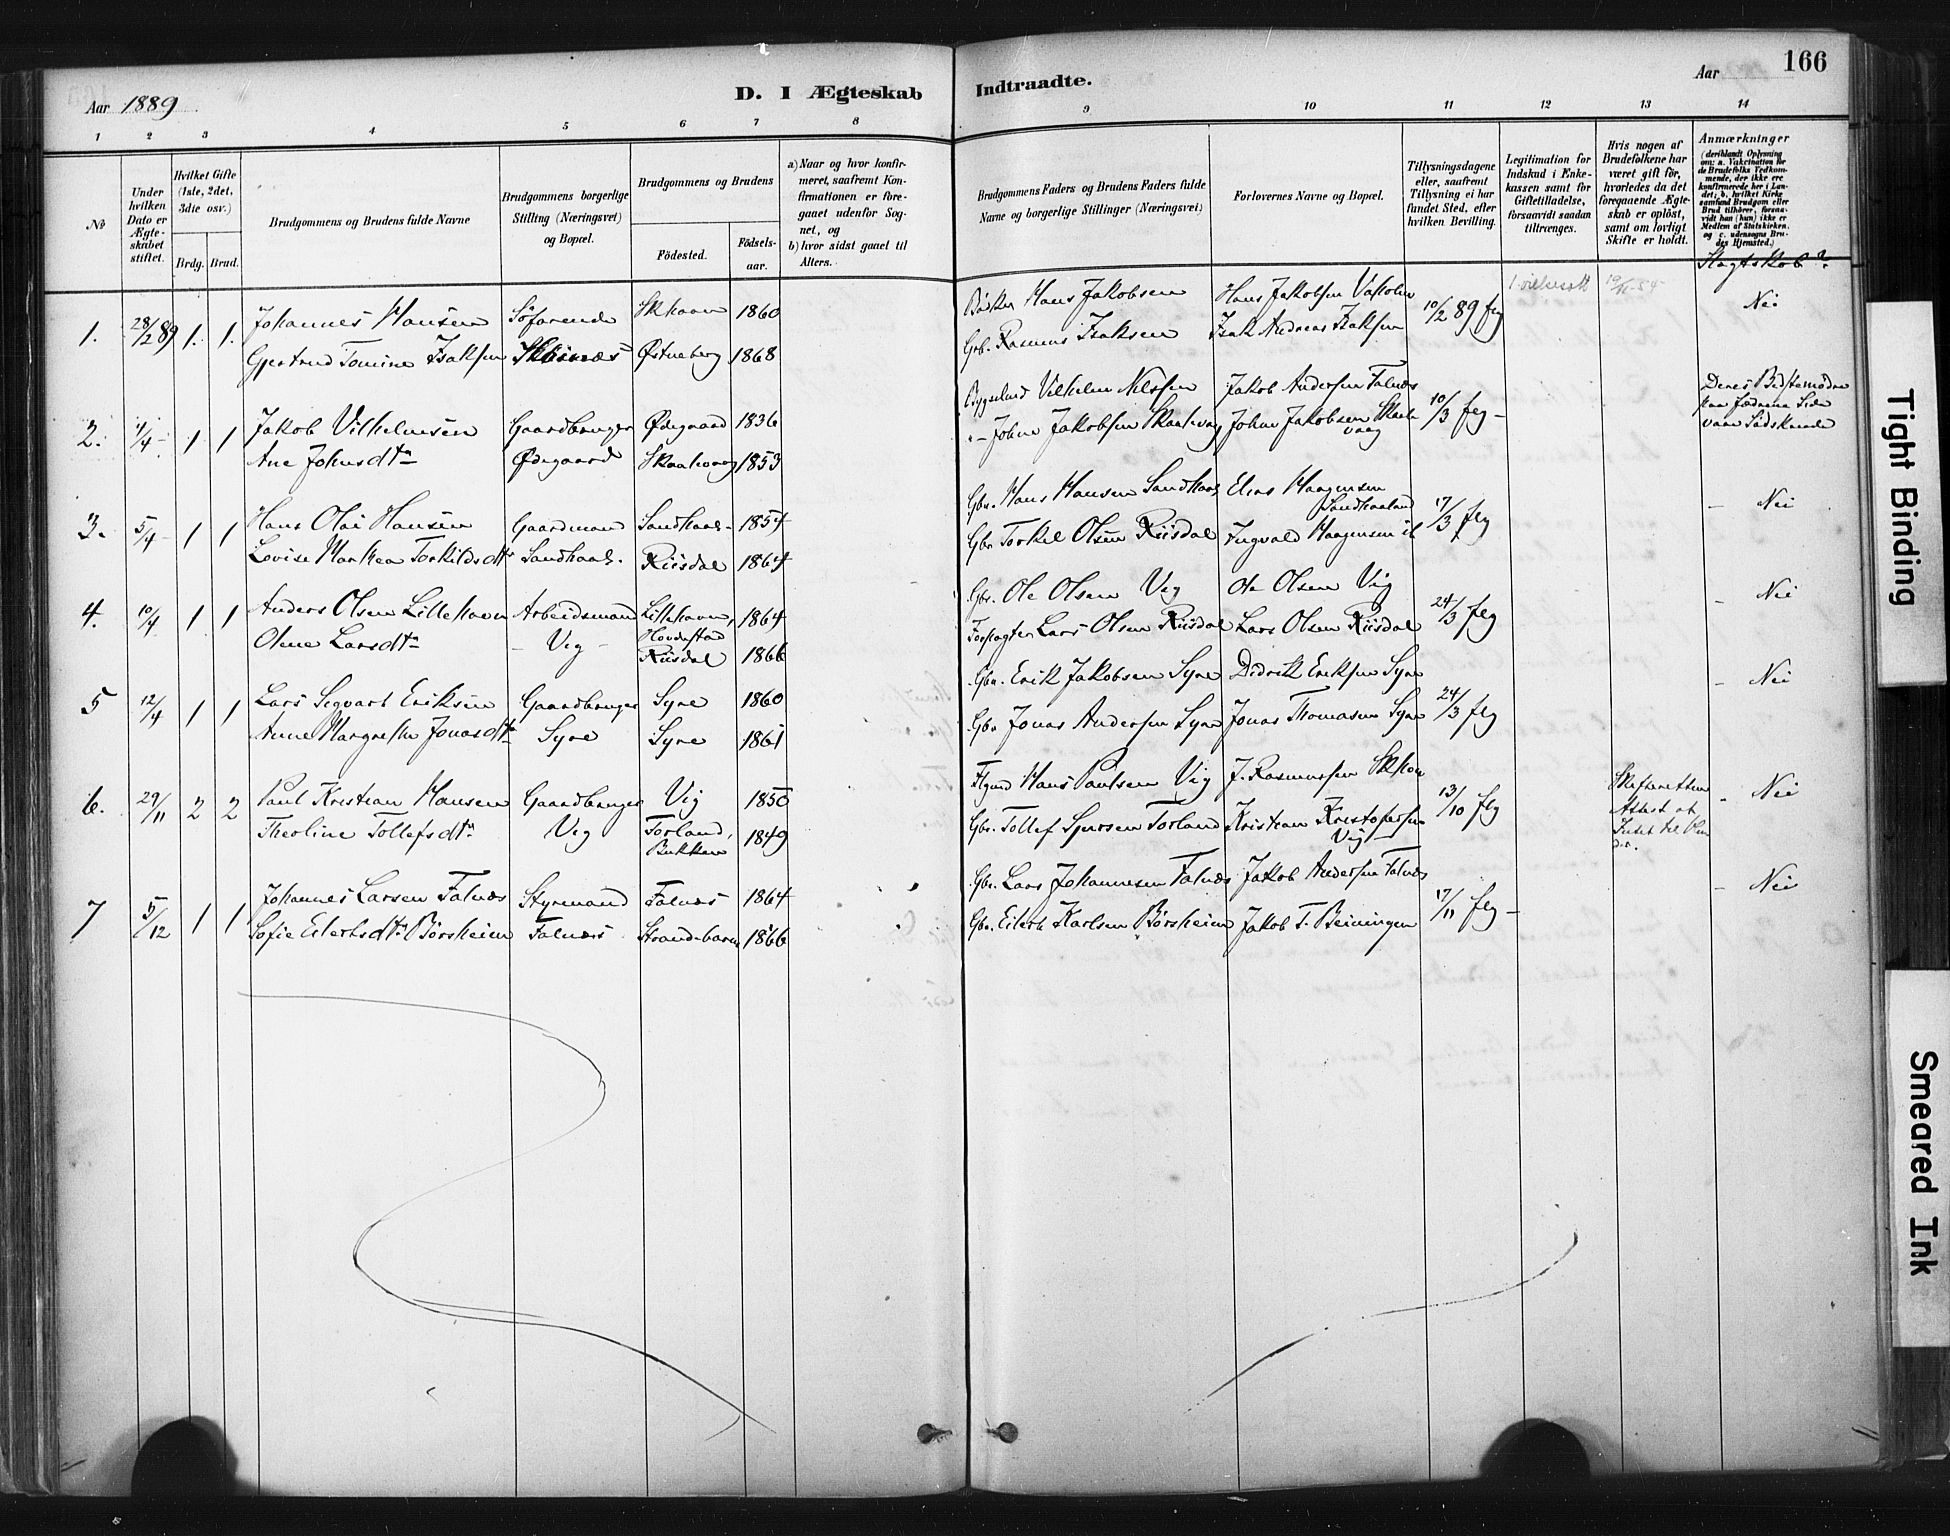 166
Aar 1889
D. I Ægteskab Indtraadte.
Aar
1 2 3 4 5 6 7 8 9 10 11 12 13 14
No
Under hvilken Dato er Ægteskabet stiftet.
Hvilket Gifte (1ste, 2det, 3die osv.)
Brdg. Brud.
Brudgommens og Brudens fulde Navne
Brudgommens borgerlige Stilling (Næringsvei) og Bopæl.
Brudgommens og Brudens
Fødested.
Fødselsaar.
a) Naar og hvor konfirmeret, saafremt Konfirmationen er foregaaet udenfor Sognet, og
b) hvor sidst gaaet til Alters.
Brudgommens Faders og Brudens Faders fulde Navne og borgerlige Stillinger (Næringsvei)
Forlovernes Navne og Bopæl.
Tillysningsdagene eller, saafremt Tillysning ei har fundet Sted, efter hvilken Bevilling.
Legitimation for Indskud i Enkekassen samt for Giftetilladelse, forsaavidt saadan tiltrænges.
Hvis nogen af Brudefolkene har været gift før, hvorledes da det foregaaende Ægteskab er opløst, samt om lovligt Skifte er holdt.
Anmærkninger
(deriblandt Oplysning om: a. Vakcination for de Brudefolks Vedkommende, der ikke ere konfirmerede her i Landet; b. hvilket Kirkesamfund Brudgom eller Brud tilhører, forsaavidt han (hun) ikke er Medlem af Statskirken. og c. udensogns Brudes Hjemsted.)
Slagtskab?
1. 28/2 89 1. 1. Johannes Hansen Søfarende Skhavn 1860 Hans Jakobsen Hans Jakobsen 10/2 89 flg Nei
Gjertrud Tomine Isaksen Østneberg 1868 Gbr. Rasmus Isaksen Isak Andreas Isaksen
2. 1/4 1 1 Jakob Vilhelmsen Gaardbruger Ødegaard 1836 Vilhelm Nilssen Jakob Andersen Falnæs 10/3 flg – Deres Bedstemødre paa Fædrene Side vare Sødskende
Ane Johnsdtr Ødegaard Skaalvaag 1853 Johne Jakobsen Skaalevaag Johne Jakobsen Skaalevaag
3. 5/4 1 1 Hans Olai Hansen Gaardmand Sandhaal. 1854 Gbr. Hans Hansen Sandhaal. Elias Haagensen Sandhaaland 17/3 flg – Nei
Lovise Marthea Torkildsdtr Sandhaal. Riisdal 1864 Gbr Torkel Olsen Riisdal Ingvald Haagensen
4. 10/4 1 1 Anders Olsen Lillehavn Arbeidsmand Lillehavn, Hovdestad 1864 Gbr. Ole Olsen Vig Ole Olsen Vig 24/3 flg – Nei
Oline Larsdtr – Vig – Riisdal 1866 Forpagter Lars Olsen Riisdal Lars Olsen Riisdal
5 12/4 1 1 Lars Segvart Eriksen Gaardbruger Syre 1860 Gbr. Erik Jakobsen Syre Didrik Eriksen Syre 24/3 flg – Nei
Anne Margrethe Jonasdtr Syre Syre 1861 Gbr Jonas Andersen Syre Jonas Thomasen Syre
6. 29/11 2 2 Paul Kristian Hansen Gaardbruger Vig 1850 Hans Paulsen Vig J. Rasmussen 13/10 flg Skifterettens Attest at – Nei
Theoline Tollefsdtr Vig Torland, Bukken 1849 Gbr. Tollef Torland Kristian Kristofersen Vig
7 5/12 1 1 Johannes Larsen Falnæs Styrmand Falnæs 1864 Gbr. Lars Johannesen Falnæs Jakob Andersen Falnæs 17/11 flg – – Nei
Sofie Eilertsdtr Børsheim Falnæs Strandebarm 1866 Gbr. Eilert Karlsen Børsheim Jakob T. Beiningen
Tight Binding
Smeared Ink